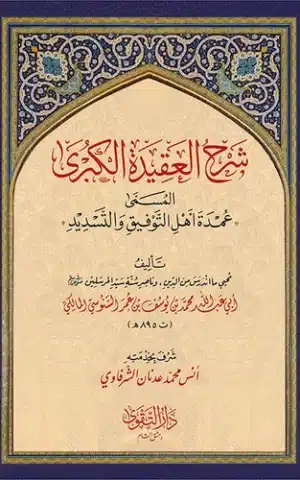 شرح العقيدة الكبرى
المسمى
عمدة أهل التوفيق والتسديد
تأليف
محيي ما اندرس من الدين، وناصر سنة سيد المرسلين ﷺ
أبي عبد الله محمد بن يوسف بن عمر السنوسي المالكي
(ت ٨٩٥ هـ)
شرف بخدمته
أنس محمد عدنان الشرفاوي
دار التقوى
دمشق الشام